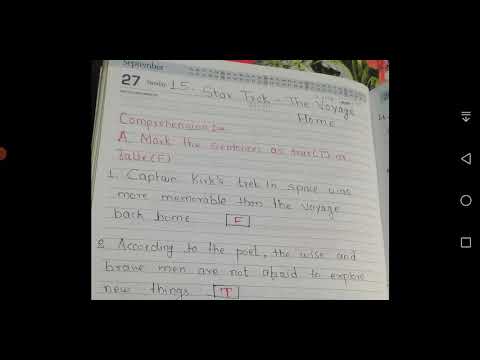 September
27 Tuesday 15. Star Trek - The Voyage
Home
Comprehension :-
A. Mark the sentences as true(T) or
false(F)
1. Captain Kirk's trek in space was
more memorable than the voyage
back home. F
2. According to the poet, the wise and
brave men are not afraid to explore
new things. T